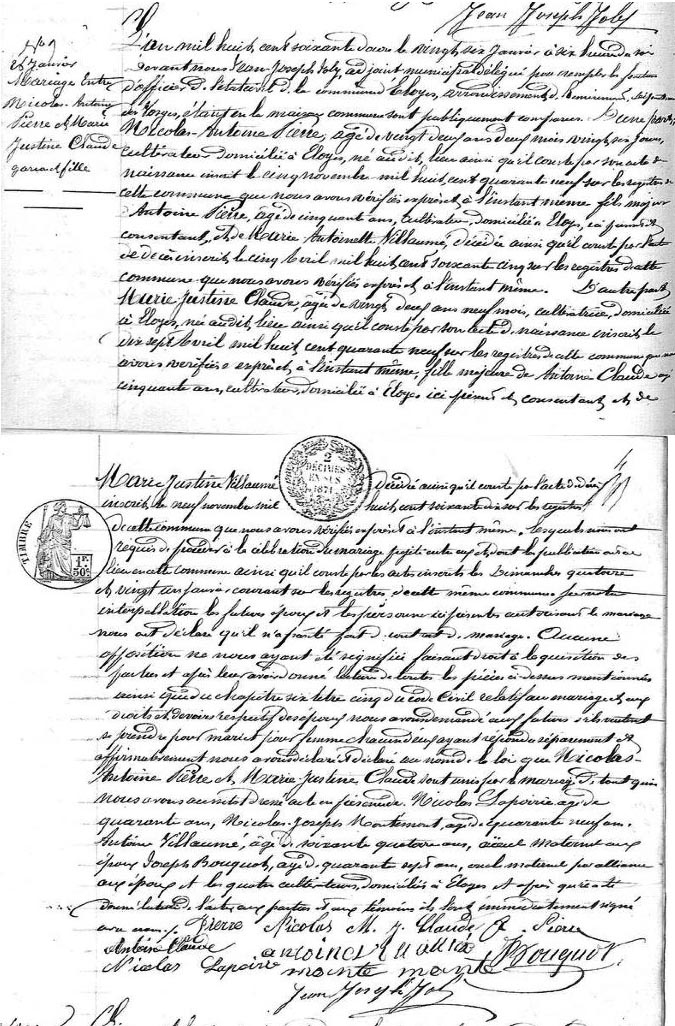 Jean Joseph Joly
L'an mil huit cent soixante douze le vingt six Janvier à six heures du soir
devant nous Jean Joseph Joly, adjoint municipal délégué pour remplir les fonctions
d'officier de l'état civil de la commune d'Eloyes, arrondissement de Remiremont, département
des Vosges, étant en la maison commune sont publiquement comparus. D'une part,
26 Janvier
Mariage Entre
Nicolas-Antoine
Pierre et Marie
Justine Claude
garçon et fille
Nicolas-Antoine Pierre, âgé de vingt deux ans deux mois vingt six jours,
cultivateur domicilié à Eloyes, né audit lieu ainsi qu'il conste par son acte de
naissance inscrit le cinq novembre mil huit cent quarante neuf sur les registres de
cette commune que nous avons vérifiés exprès et à l'instant même fils majeur
Antoine Pierre, âgé de cinquante ans, cultivateur, domicilié à Eloyes, ici présent et
consentant, et de Marie Antoinette Villaumé, décédée ainsi qu'il conste par l'acte
de décès inscrit le cinq Avril mil huit cent soixante cinq sur les registres de cette
commune que nous avons vérifiés exprès et à l'instant même. D'autre part
Marie-Justine Claude, âgée de vingt deux ans neuf mois, cultivatrice, domiciliée
à Eloyes, née audit lieu ainsi qu'il conste par son acte de naissance inscrit le
dix sept Avril mil huit cent quarante neuf sur les registres de cette commune que nous
avons vérifiés exprès et à l'instant même, fille majeure de Antoine Claude âgé
cinquante ans, cultivateur, domicilié à Eloyes ici présent et consentant et de
2
DÉCIMES
EN SUS
1871
TIMBRE
1F.
50c.
Marie Justine Villaumé décédée ainsi qu'il conste par l'acte de décès
inscrit le neuf novembre mil huit cent soixante dix sur les registres
de cette commune que nous avons vérifiés exprès et à l'instant même. Lesquels nous ont
requis de procéder à la célébration du mariage projeté entre eux et dont les publications ont eu
lieu en cette commune ainsi qu'il conste par les actes inscrits les Dimanches quatorze
et vingt un janvier courant sur les registres de cette même commune. Sur notre
interpellation les futurs époux et les personnes ici présentes autorisant le mariage
nous ont déclaré qu'il n'a été fait de contrat de mariage. Aucune
opposition ne nous ayant été signifiée faisant droit à la réquisition des
parties et après leur avoir donné lecture de toutes les pièces ci dessus mentionnées
ainsi que du chapitre six titre cinq du code Civil relatif au mariage et aux
droits et devoirs respectifs des époux nous avons demandé aux futurs s'ils veulent
se prendre pour mari et pour femme chacun d'eux ayant répondu séparément et
affirmativement nous avons déclaré et déclare au nom de la loi que Nicolas-
Antoine Pierre et Marie Justine Claude sont unis par le mariage de tout quoi
nous avons aussitôt dressé acte en présence de Nicolas Lapoirie âgé de
quarante ans, Nicolas-Joseph Montémont, âgé de quarante neuf ans.
Antoine Villaumé, âgé de soixante quatorze ans, aïeul maternel aux
époux Joseph Bouquot, âgé de quarante sept ans, oncle maternel par alliance
aux époux et les quatre cultivateurs, domiciliés à Eloyes et après qu'il a été
donné lecture de l'acte aux parties et aux témoins ils l'ont immédiatement signé
avec nous. Pierre Nicolas M. J. Claude A. Pierre
Antoine Claude antoine vuaume J Bouquot
Nicolas Lapoirie monte mont
Jean Joseph Joly